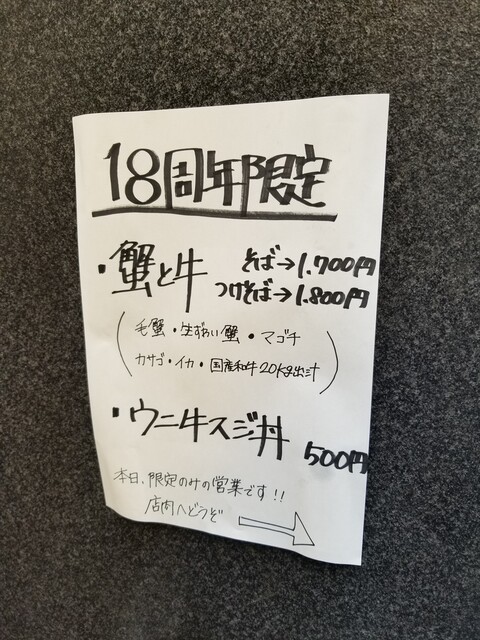 18周年限定
・蟹と牛 そば→1.700円
つけそば→1.800円
(毛蟹・生ずわい蟹・マゴチ
カサゴ・イカ・国産和牛20kg出汁)
・ウニ牛スジ丼 500円
本日、限定のみの営業です!!
店内へどうぞ